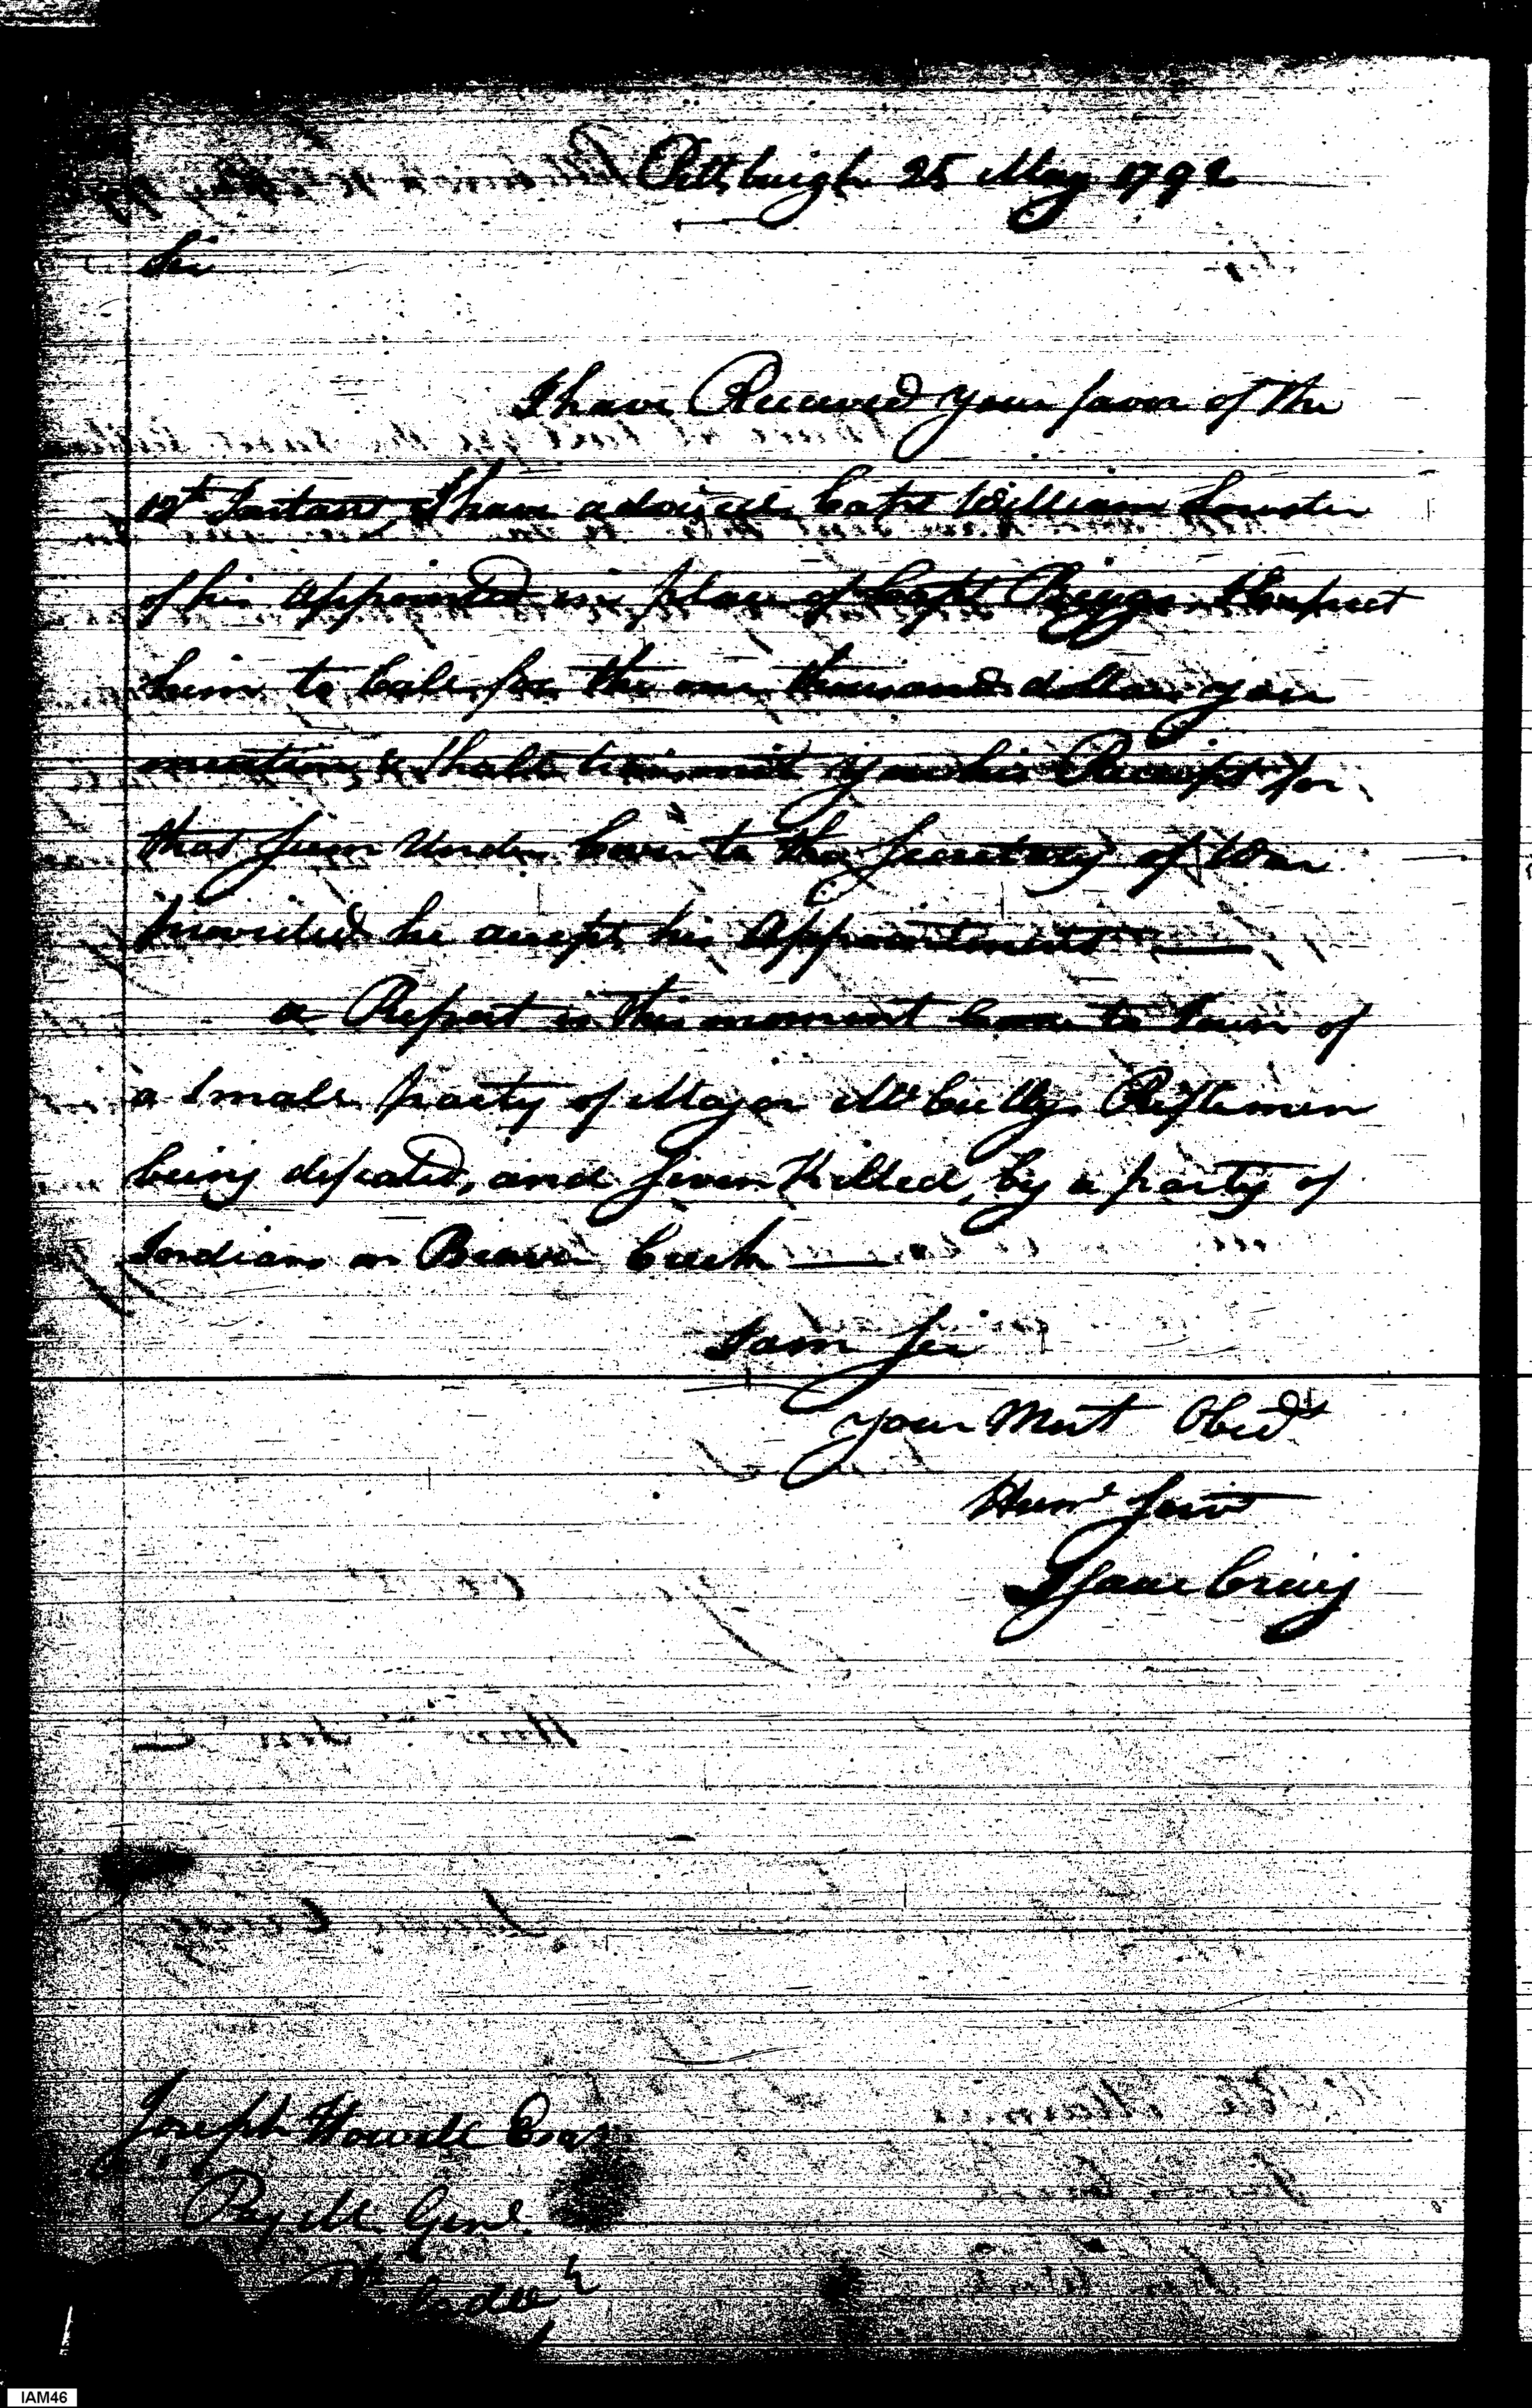 Pittsburgh 25 May 1792
Sir
I have Received your favor of the
12th Instant, I have advised Capt William
of his appointed in place of Capt Biggs. I Expect
him to Call for the one thousand dollars you
mention, & shall transmit you his Receipt for
that Sum Under Cover to the Secretary of War
provided he accepts his Appointment —
a Report is this moment Come to Town of
a Small party of Major McCullys Riflemen
being defeated, and Seven Killed, by a party of
Indians on Beaver Creek —
I am Sir
your Most Obedt
Hume Servt
Isaac Craig
Joseph Howell Esqr
Pay M. Genl.
IAM46